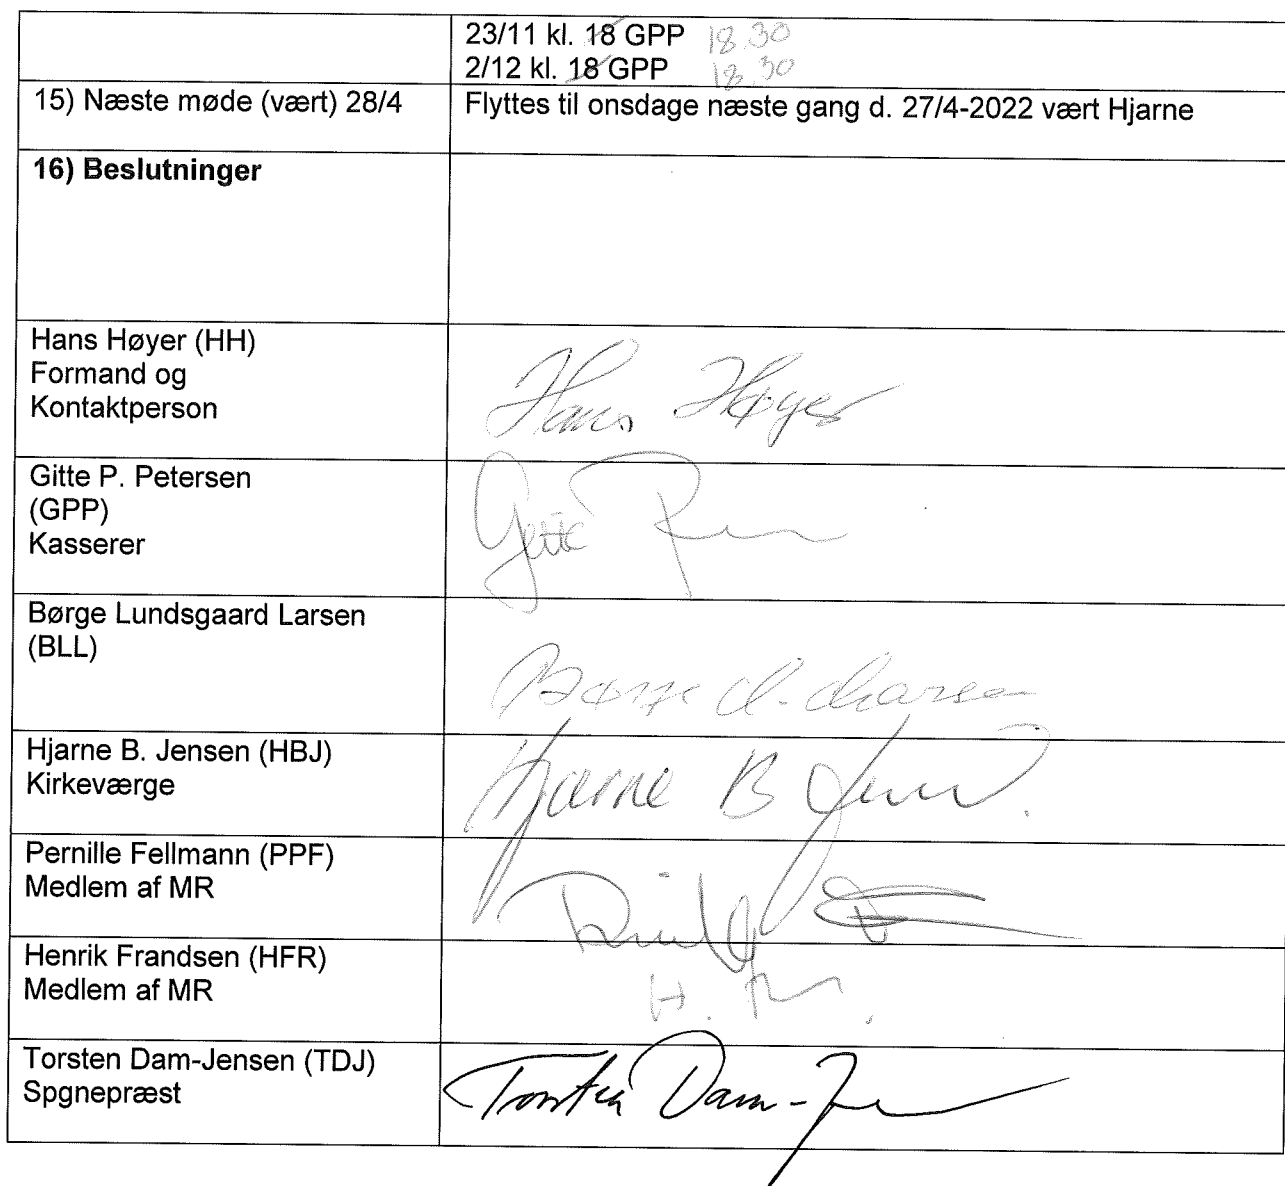 23/11 kl. 18 GPP 18.30
2/12 kl. 18 GPP 18.30
15) Næste møde (vært) 28/4 Flyttes til onsdage næste gang d. 27/4-2022 vært Hjarne
16) Beslutninger
Hans Høyer (HH)
Formand og
Kontaktperson
Hans Høyer
Gitte P. Petersen
(GPP)
Kasserer
Gitte
Børge Lundsgaard Larsen
(BLL)
Børge L. Larsen
Hjarne B. Jensen (HBJ)
Kirkeværge
Hjarne B Jensen
Pernille Fellmann (PPF)
Medlem af MR
Henrik Frandsen (HFR)
Medlem af MR
H.
Torsten Dam-Jensen (TDJ)
Spgnepræst
Torsten Dam-